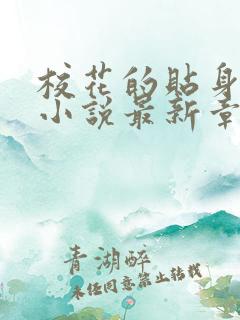 校花的貼身
小說最新章
青湖醉
未经同意禁止转载